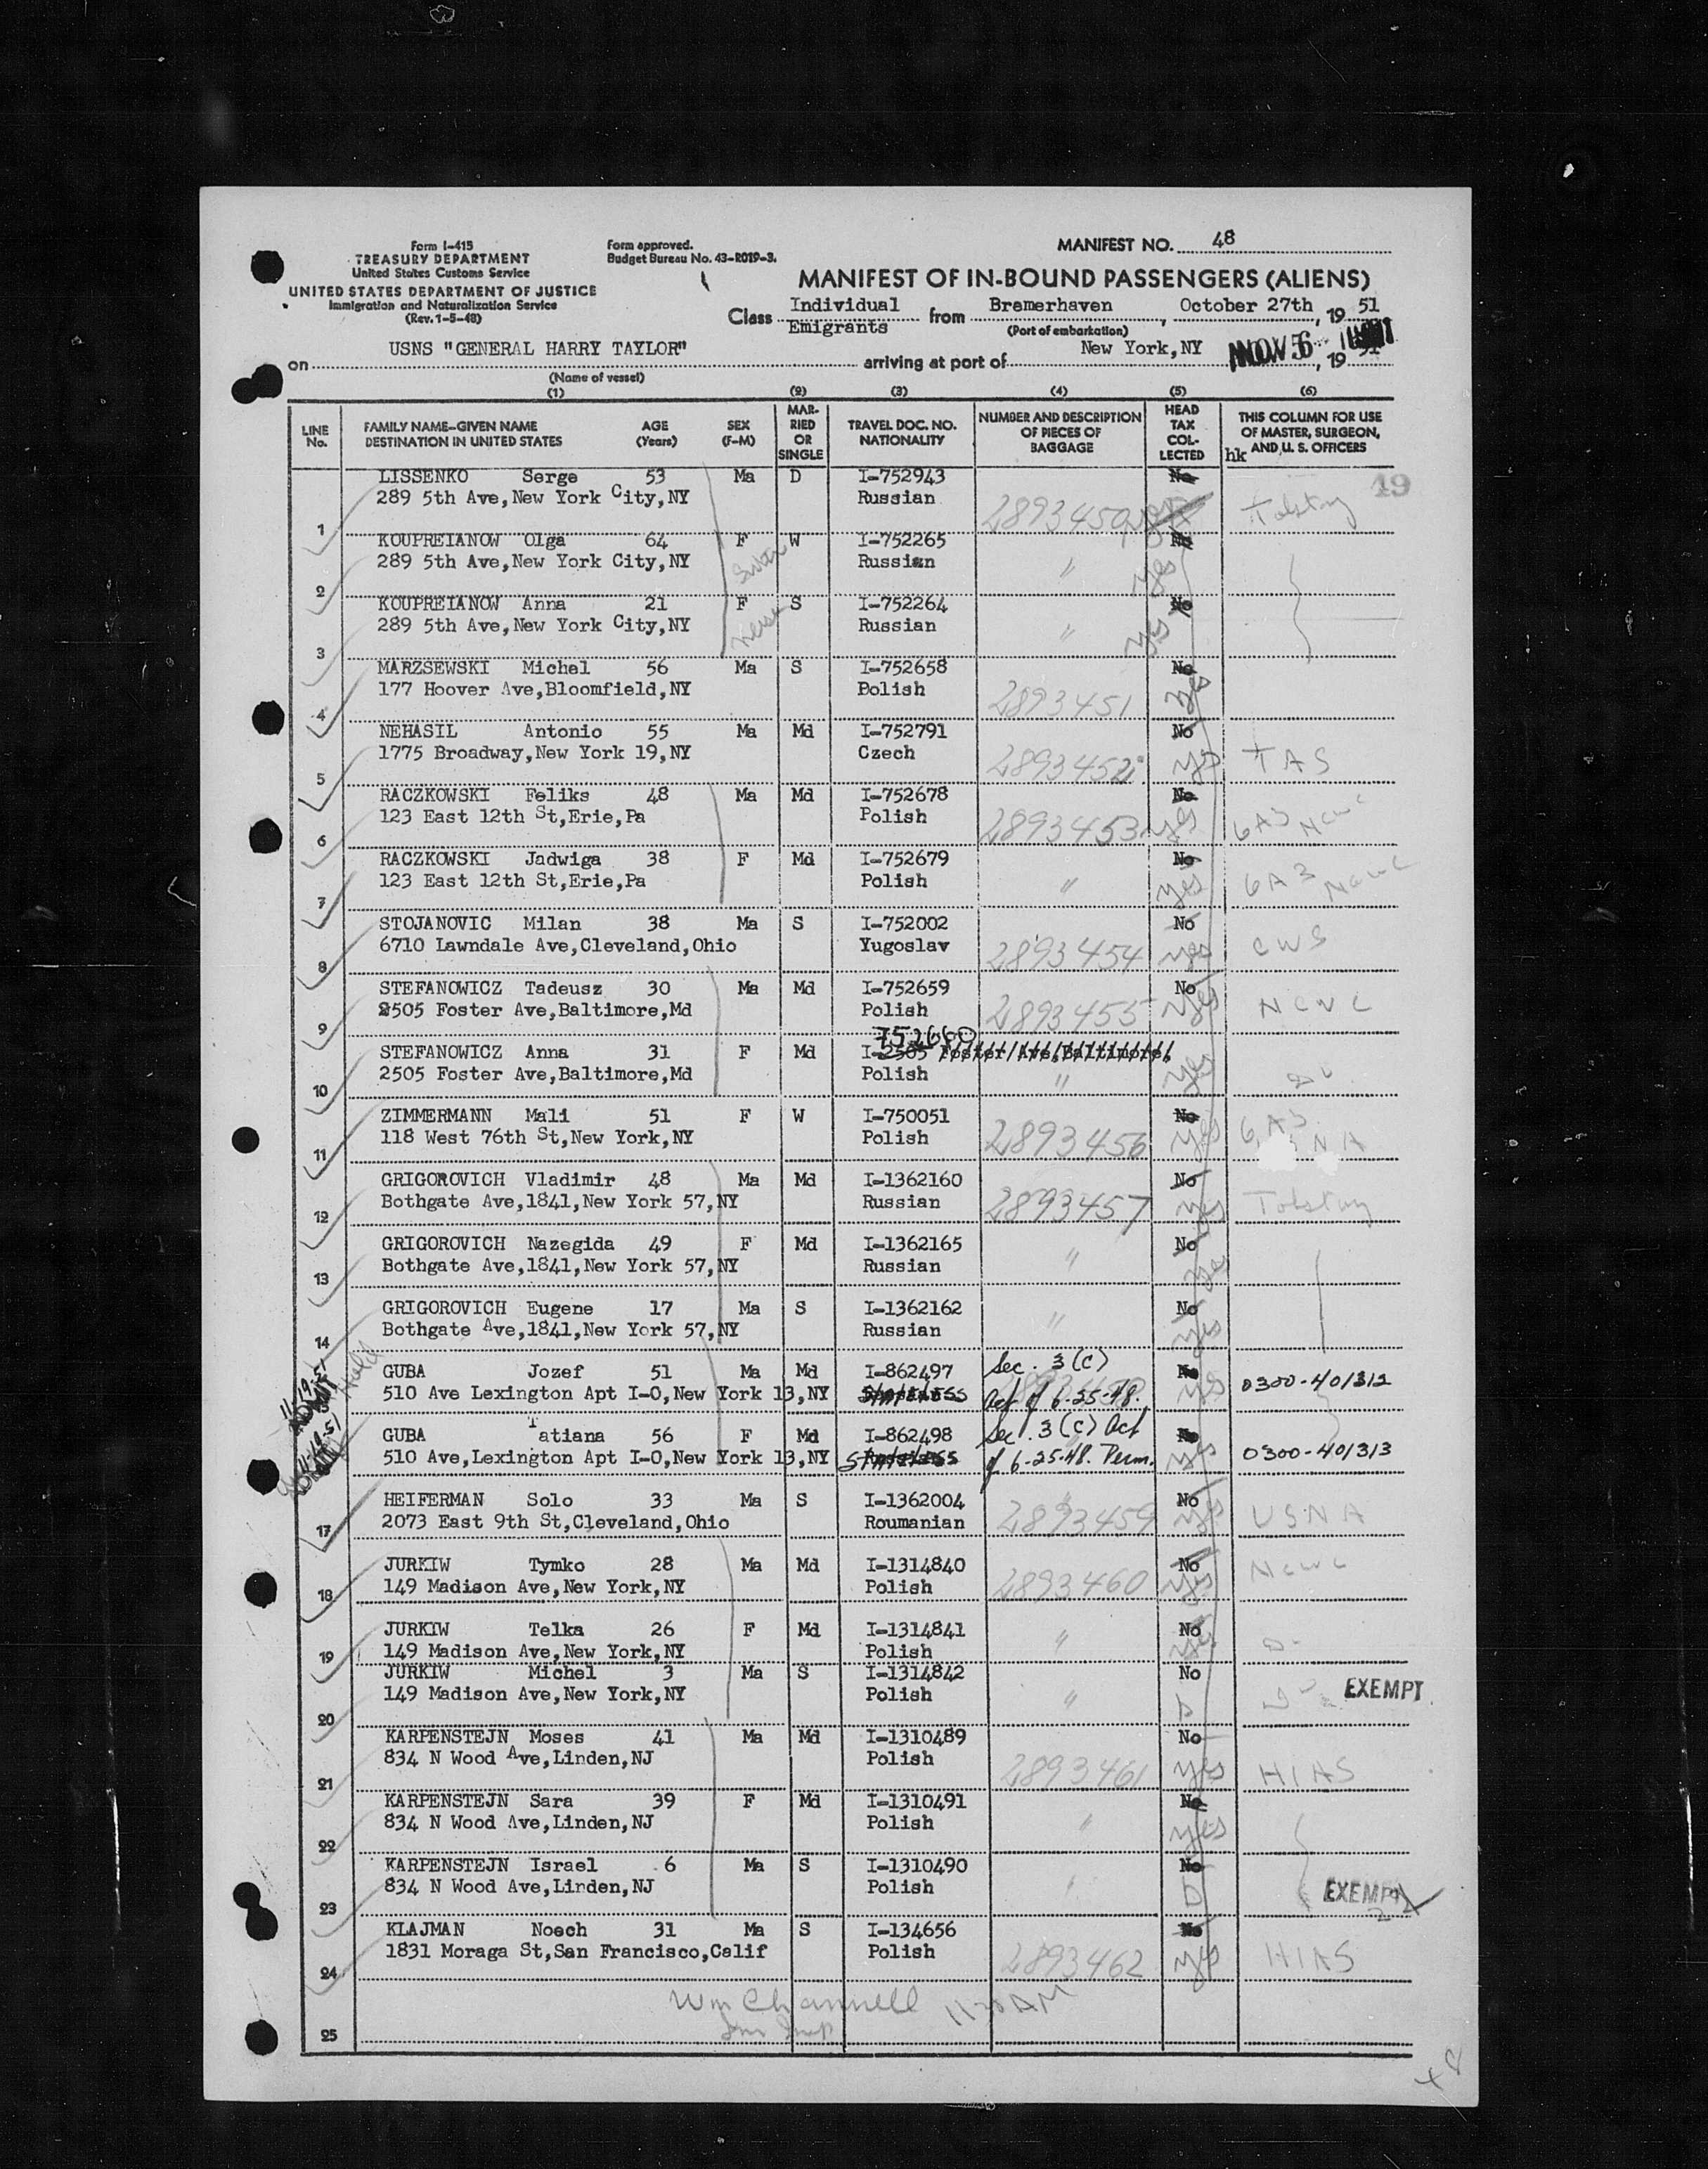 Form I-415
TREASURY DEPARTMENT
United States Customs Service
UNITED STATES DEPARTMENT OF JUSTICE
Immigration and Naturalization Service
(Rev. 1-5-48)
Form approved.
Budget Bureau No. 43-R019-3.
MANIFEST NO. 48
MANIFEST OF IN-BOUND PASSENGERS (ALIENS)
Class Individual Emigrants from Bremerhaven, October 27th, 19 51
(Port of embarkation)
on USNS "GENERAL HARRY TAYLOR" arriving at port of New York,NY NOV 6, 19 51
(Name of vessel)
(1) (2) (3) (4) (5) (6)
LINE No. FAMILY NAME-GIVEN NAME DESTINATION IN UNITED STATES AGE (Years) SEX (F-M) MARRIED OR SINGLE TRAVEL DOC. NO. NATIONALITY NUMBER AND DESCRIPTION OF PIECES OF BAGGAGE HEAD TAX COLLECTED THIS COLUMN FOR USE OF MASTER, SURGEON, AND U. S. OFFICERS
hk
49
LISSENKO Serge 53 Ma D I-752943 No
1 289 5th Ave,New York City,NY Russian 2893450 Tolstoy
KOUPREIANOW Olga 64 F W I-752265 No
2 289 5th Ave,New York City,NY Russian " yes
KOUPREIANOW Anna 21 F S I-752264 No
3 289 5th Ave,New York City,NY Russian " yes
MARZSEWSKI Michel 56 Ma S I-752658 No
4 177 Hoover Ave,Bloomfield,NY Polish 2893451 yes
NEHASIL Antonio 55 Ma Md I-752791 No
5 1775 Broadway,New York 19,NY Czech 2893452 yes TAS
RACZKOWSKI Feliks 48 Ma Md I-752678 No
6 123 East 12th St,Erie,Pa Polish 2893453 yes 6A3 NCWC
RACZKOWSKI Jadwiga 38 F Md I-752679 No
7 123 East 12th St,Erie,Pa Polish " yes 6A3 NCWC
STOJANOVIC Milan 38 Ma S I-752002 No
8 6710 Lawndale Ave,Cleveland,Ohio Yugoslav 2893454 yes CWS
STEFANOWICZ Tadeusz 30 Ma Md I-752659 No
9 2505 Foster Ave,Baltimore,Md Polish 2893455 yes NCWC
752660
STEFANOWICZ Anna 31 F Md I-2505 Foster Ave,Baltimore,
10 2505 Foster Ave,Baltimore,Md Polish " yes
ZIMMERMANN Mali 51 F W I-750051 No
11 118 West 76th St,New York,NY Polish 2893456 yes 6A3 NA
GRIGOROVICH Vladimir 48 Ma Md I-1362160 No
12 Bothgate Ave,1841,New York 57,NY Russian 2893457 yes Tolstoy
GRIGOROVICH Nazegida 49 F Md I-1362165 No
13 Bothgate Ave,1841,New York 57,NY Russian " yes
GRIGOROVICH Eugene 17 Ma S I-1362162 No
14 Bothgate Ave,1841,New York 57,NY Russian " yes
Held
GUBA Jozef 51 Ma Md I-862497 Sec. 3(C) No
510 Ave Lexington Apt I-O,New York 13,NY Act of 6-25-48. yes 0300-401312
GUBA Tatiana 56 F Md I-862498 Sec. 3(C) Act No
510 Ave,Lexington Apt I-O,New York 13,NY STATELESS of 6-25-48. Perm. yes 0300-401313
HEIFERMAN Solo 33 Ma S I-1362004 No
17 2073 East 9th St,Cleveland,Ohio Roumanian 2893459 yes USNA
JURKIW Tymko 28 Ma Md I-1314840 No NCWC
18 149 Madison Ave,New York,NY Polish 2893460 yes
JURKIW Telka 26 F Md I-1314841 No
19 149 Madison Ave,New York,NY Polish " yes
JURKIW Michel 3 Ma S I-1314842 No
20 149 Madison Ave,New York,NY Polish " EXEMPT
KARPENSTEJN Moses 41 Ma Md I-1310489 No
21 834 N Wood Ave,Linden,NJ Polish 2893461 yes HIAS
KARPENSTEJN Sara 39 F Md I-1310491 No
22 834 N Wood Ave,Linden,NJ Polish " yes
KARPENSTEJN Israel 6 Ma S I-1310490 No
23 834 N Wood Ave,Linden,NJ Polish EXEMPT
KLAJMAN Noech 31 Ma S I-134656 No
24 1831 Moraga St,San Francisco,Calif Polish 2893462 yes HIAS
Wm Channell 11 AM
25
48